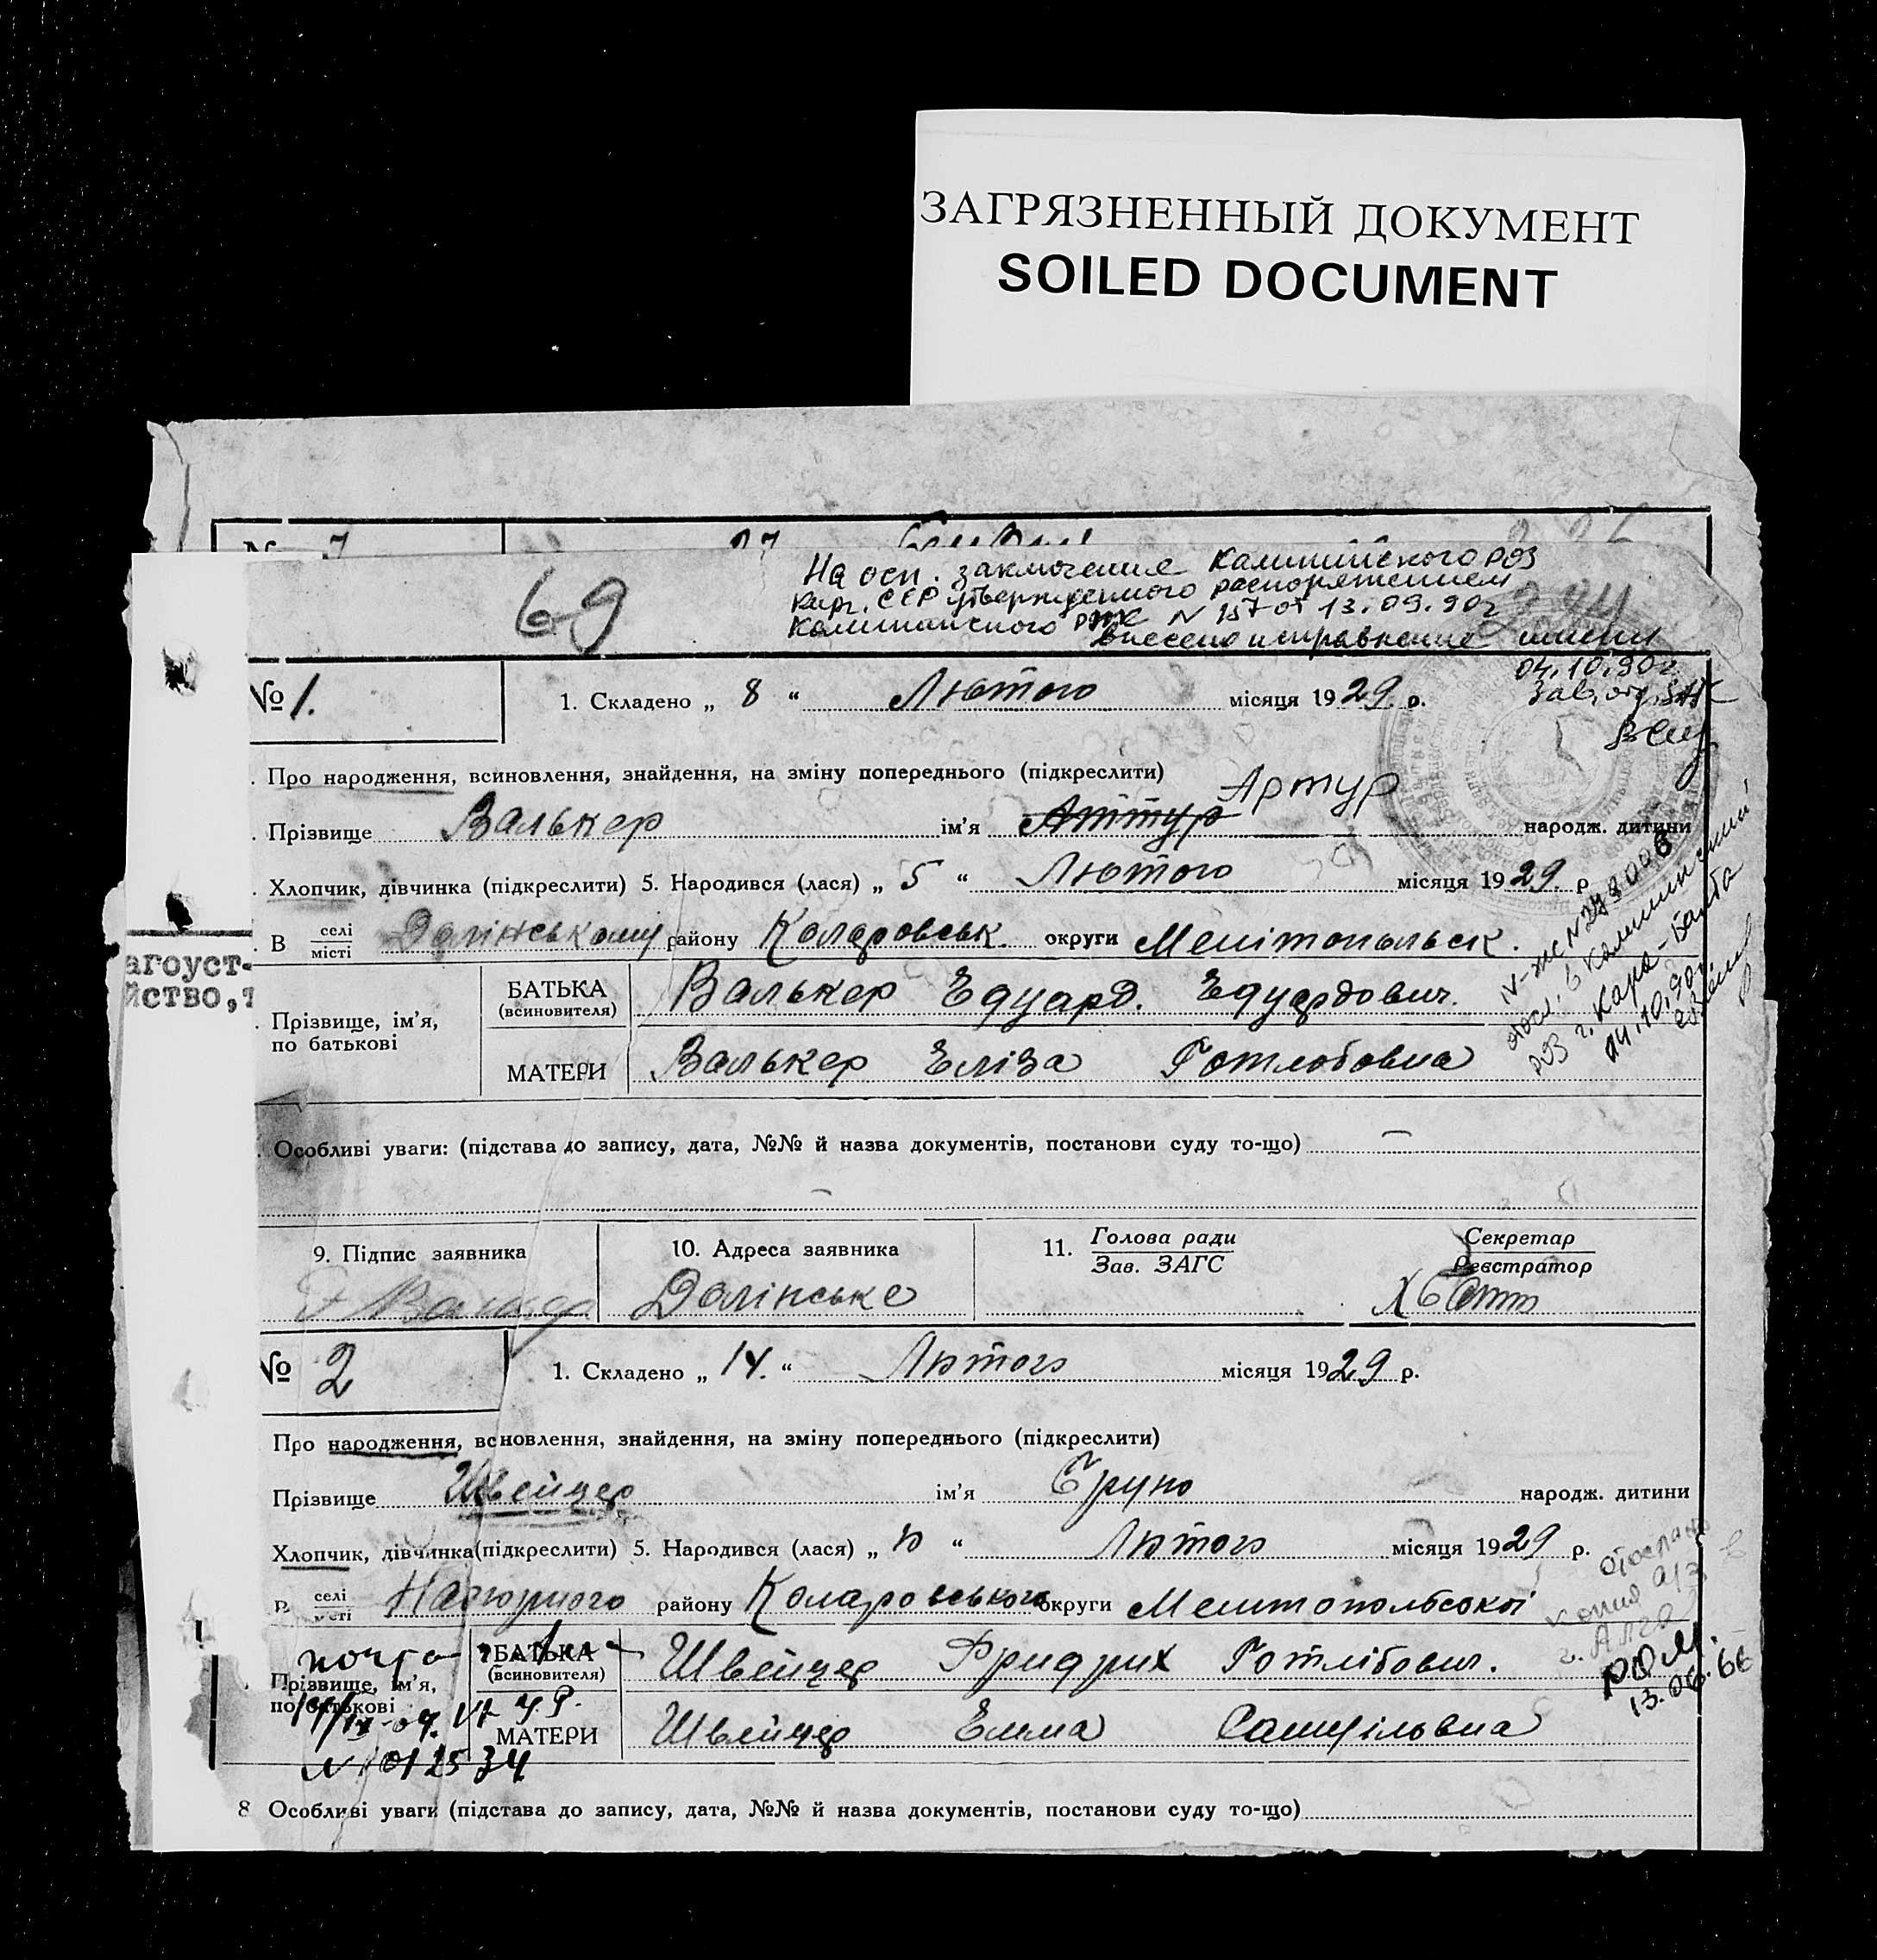 ЗАГРЯЗНЕННЫЙ ДОКУМЕНТ
SOILED DOCUMENT
69
На осн. заключение Калининского РОЗ
Кирг. ССР утвержденного распоряжением
Калининского N 157 от 13.09.90г
внесено исправление имени
04.10.90г
Зав. отд. ЗАГС
№ 1. 1. Складено „ 8 “ Лютого місяця 1929. р.
Про народження, всиновлення, знайдення, на зміну попереднього (підкреслити)
Артур
Прізвище Валькер ім’я Аттур народж. дитини
Хлопчик, дівчинка (підкреслити) 5. Народився (лася) „ 5 “ Лютого місяця 1929. р
В селі місті Долінському району Коларовськ. округи Мелітопольськ.
агоуст-
йство,т
Прізвище, ім’я, по батькові
БАТЬКА (всиновителя) Валькер Едуард. Едуардович.
МАТЕРИ Валькер Еліза Готлобовна
IV-жс N 273006
посл. в Калининский
РОЗ г. Кара-Балта
04.10.90г.
Особливі уваги: (підстава до запису, дата, №№ й назва документів, постанови суду то-що)
9. Підпис заявника 10. Адреса заявника 11. Голова ради Зав. ЗАГС Секретар Реєстратор
Долінське
№ 2 1. Складено „ 14. “ Лютого місяця 1929 р.
Про народження, всновлення, знайдення, на зміну попереднього (підкреслити)
Прізвище Швейцер ім’я Бруно народж. дитини
Хлопчик, дівчинка(підкреслити) 5. Народився (лася) „ 10 “ Лютого місяця 1929 р.
В селі місті Нагорного району Коларовського округи Мелітопольської
отослано
копия а/з в
г. Алга
13.06.66
Прізвище, ім’я, по батькові
БАТЬКА (всиновителя) Швейцер Фридрих Готлібович.
МАТЕРИ Швейцер Емма Самуіловна
N 012534
8 Особливі уваги (підстава до запису, дата, №№ й назва документів, постанови суду то-що)